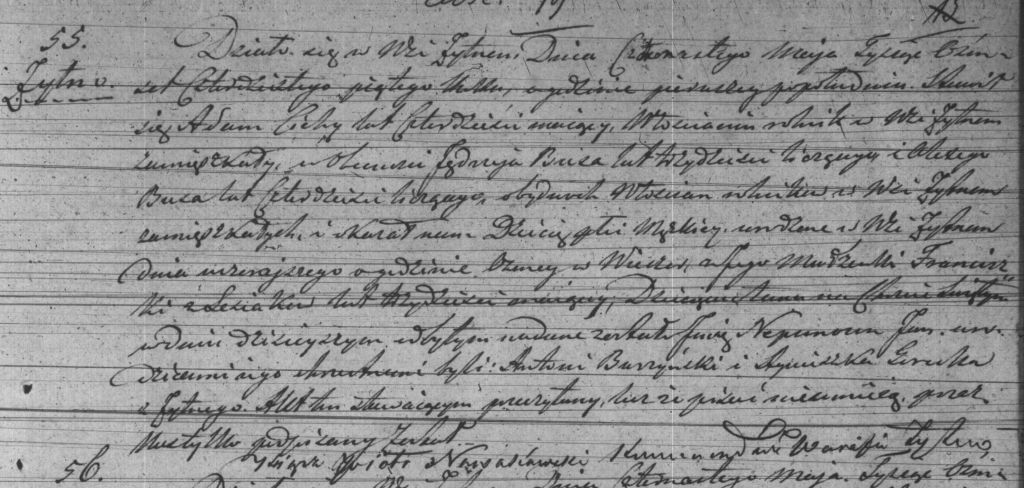 55.
Żytno.
Działo się w Wsi Żytnem, Dnia Czternastego Maja Tysiąc Ośm-
set Czterdziestego piątego Roku, o godzinie pierwszej popołudniu. Stawił
się Adam Cichy lat Czterdzieści maiący, Włościanin rolnik w Wsi Żytnem
zamięszkały, w obecności Jędrzeja Busa lat trzydzieści liczącego i
Busa lat Czterdzieści liczącego, obydwóch Włościan rolników w Wsi Żytnem
zamięszkałych, i okazał nam Dziecię płci Męzkiey urodzone w Wsi Żytnem
dnia wczorajszego o godzinie Ósmey w Wieczór, z Jego Małżonki Francisz-
ki z Lesiaków lat trzydzieści maiącey, Dziecięciu temu na Chrzcie Świętym
w dniu dzisieyszym odbytym nadane zostało Imię Nepomucen Jan. a ro-
dzicami iego chrzestnemi byli: Antoni Burzyński i Agnieszka
z Żytnego. Akt ten stawaiącym przeczytany, lecz że pisać nieumieią, przez
Nas tylko podpisany został.
Xiądz
56.
Czternastego Maja Tysiąc Ośm-